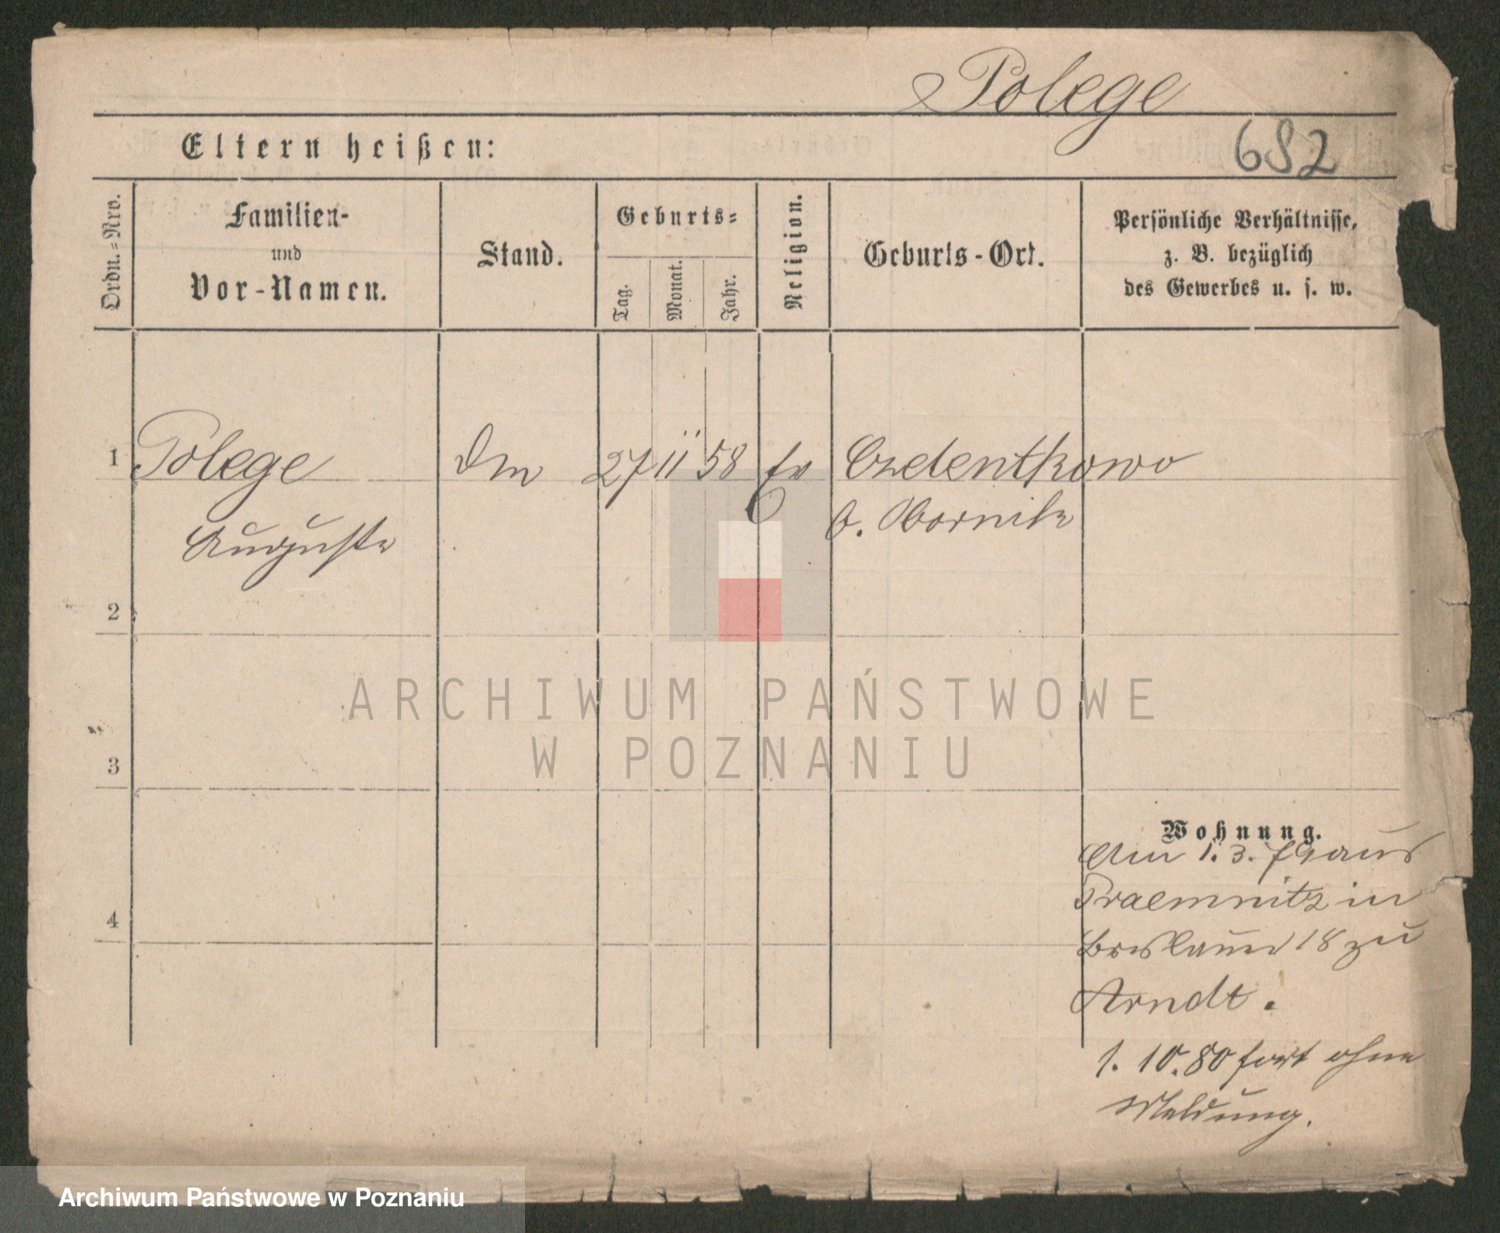 Polege
682
Eltern heißen:
Ordn.-Nro.
Familien-
und
Vor-Namen.
Stand.
Geburts-
Tag.
Monat.
Jahr.
Religion.
Geburts-Ort.
Persönliche Verhältnisse,
z. B. bezüglich
des Gewerbes u. s. w.
1 Polege 27 11 58 Ev
Auguste b. Obornik
2
3
4
ARCHIWUM PAŃSTWOWE
W POZNANIU
Wohnung.
Am 1. 3. 79 aus
in
Breslauer 18 zu
Arndt.
1. 10. 80 fort ohne
Meldung.
Archiwum Państwowe w Poznaniu